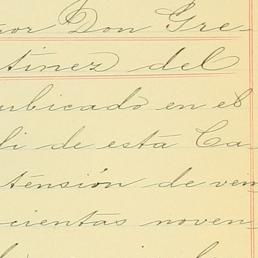 ñor Don Gre-
tinez del
ubicado en el
li de esta Ca-
tensión de vein
cientas noven-